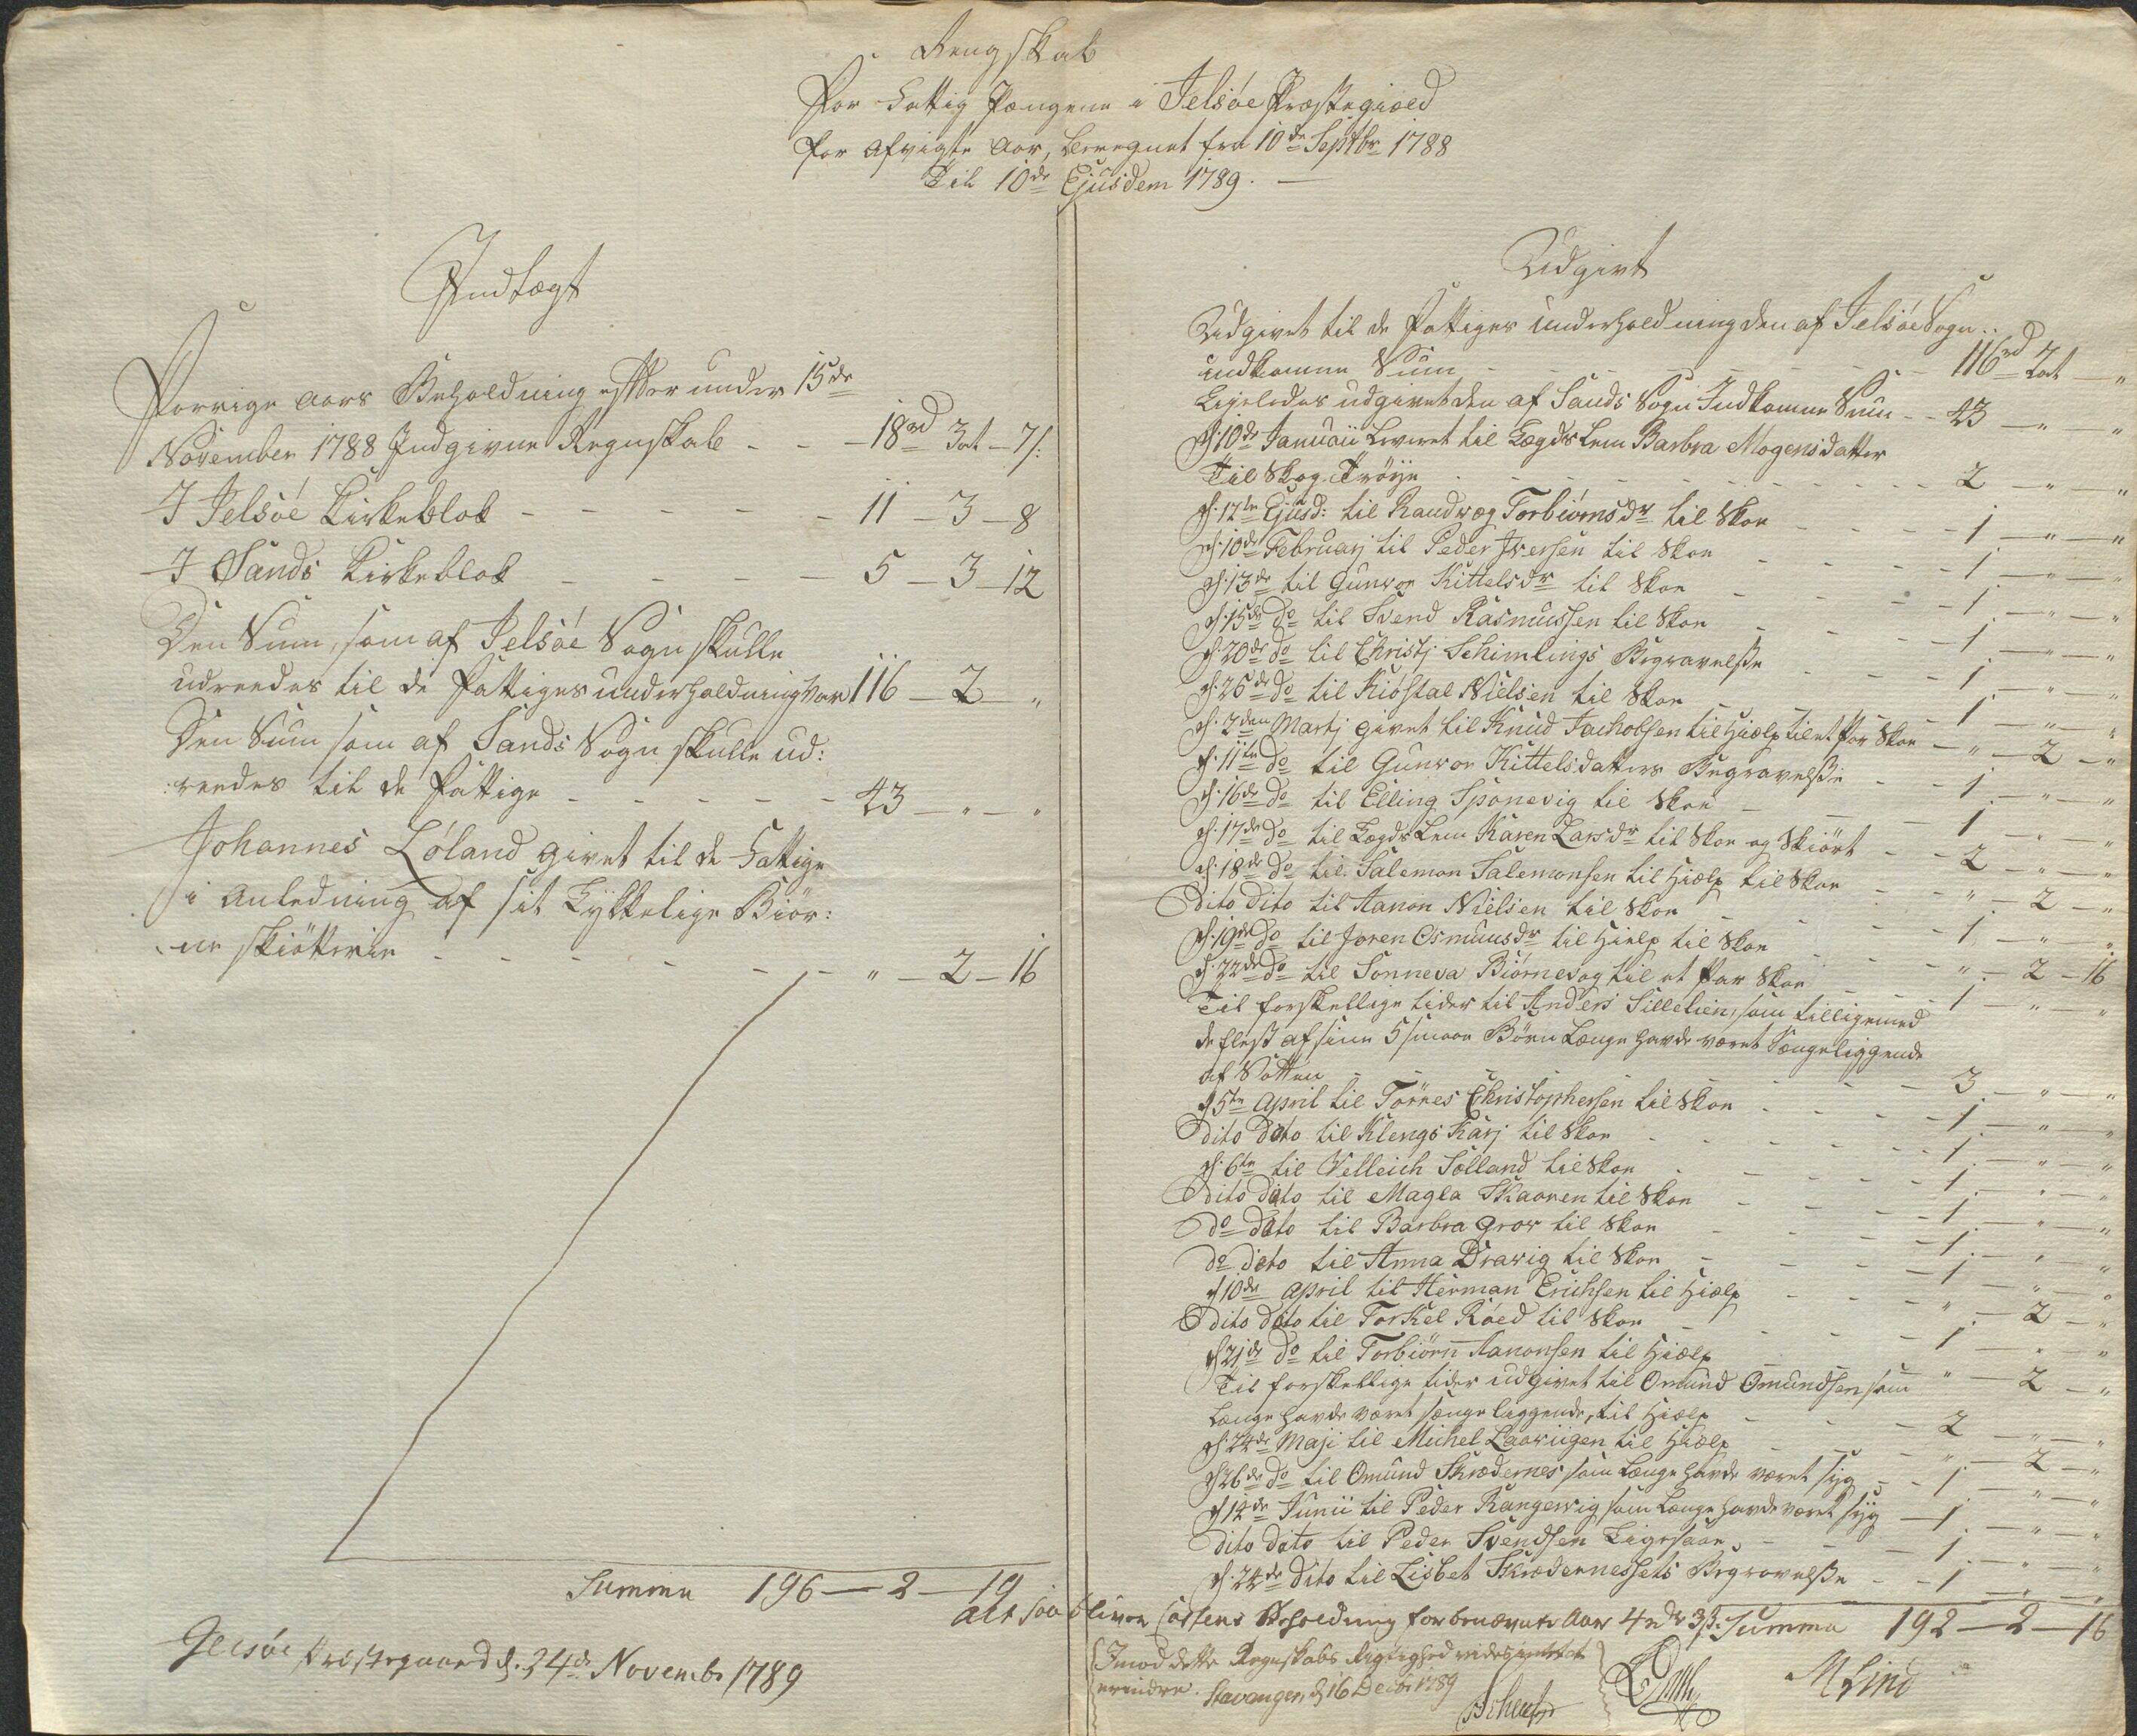 Rengskab
For Fattig Pængene i Jelsøe Præstegiæld
for afvigte Aar, beregnet fra 10de Septbr 1788
Til 10de Ejusdem 1789. —
Indtægt
Forrige Aars Beholdning efter under 15de
November 1788 Indgivne Regnskab - - 18rd 3ort 7s:
I Jelsøe Kirkeblok - - - - - 11 - 3 - 8
I Sands Kirkeblok - - - - 5 - 3 - 12
Den Sum, som af Jelsøe Sogn skulle
udreedes til de Fattiges underholdning var 116 - 2 - "
Den Sum som af Sands Sogn skulle ud:
:reedes til de Fattige - - - - - 43 - " - "
Johannes Løland givet til de Fattige
i Anledning af sit Lykkelige Biör:
:ne skiötterie - - - - - - " - 2 - 16
Summa 196 - 2 - 19
Jelsøe Præstegaard d. 24de Novembr 1789
Udgivt
Udgivet til de Fattiges underholdning den af Jelsøe Sogn
indkomne Sum - - - - - - 116rd 2ort "
Ligeledes udgivet den af Sands Sogn Indkomne Sum - - 43 - " - "
d: 10de Januarii Leveret til Lægds Lem Barbra Mogensdatter
Til Skog Tröije - - - - - - - 2 - " - "
d: 12te Ejusd: til Randvæg Torbiörnsdr til Skoe - - - 1 - " - "
d: 10de Februarj til Peder Iversen til Skoe - - - 1 - " - "
d: 13de til Gunvor Kittelsdr til Skoe - - - 1 - " - "
d: 15de do til Svend Rasmussen til Skoe - - - 1 - " - "
d: 20de do til Christj Schimlings Begravelße - - - 1 - " - "
d: 26de do til Kiöstal Nielsen til Skoe - - - 1 - " - "
d: 2den Martj givet til Knud Jachobsen til Hiælp til et Par Skoe - " - 2 - "
d: 11te do til Gunvor Kittelsdatters Begravelße - - 1 - " - "
d: 16de do til Elling Sponevig til Skoe - - - 1 - " - "
d: 17de do til Lægds Lem Karen Larsdr til Skoe og Skiört - - 2 - " - "
d: 18de do til Salemon Salemonsen til Hiælp til Skoe - - " - 2 - "
Dito Dito til Aanon Nielsen til Skoe - - - 1 - " - "
d: 19de do til Joren Osmunsdr til Hielp til Skoe - - - " - 2 - 16
d: 22de do til Sonneva Biörnevog til et Par Skoe - - - 1 - " - "
Til forskellige tider til Anders Sillelien, som tilligemed
de flest af sine 5 smaae Börn Længe havde været Sængeliggende
af Sotten - - - - - 3 - " - "
d 5te April til Törnes Christophersen til Skoe - - - 1 - " - "
Dito Dito til Klengs Karj til Skoe - - - 1 - " - "
d: 6te til Velleich Solland til Skoe - - - 1 - " - "
Dito Dito til Magla Skaaren til Skoe - - - 1 - " - "
do Dito til Barbra Grov til Skoe - - - 1 - " - "
do dito til Anna Dravig til Skoe - - - 1 - " - "
d 10de April til Herman Erichsen til Hiælp - - - " - 2 - "
Dito Dito til Torkel Röed til Skoe - - - 1 - " - "
d 21de do til Torbiörn Aanonsen til Hiælp - - " - 2 - "
Til forskellige tider udgivet til Omund Omundsen, som
Længe havde været sænge liggende, til Hiælp - - - 2 - " - "
d: 24de Maji til Michel Laaviigen til Hiælp - - " - 2 - "
d 26de do til Omund Skrædernes, som Længe havde været syg - - 1 - " - "
d 14de Junii til Peder Rangervig som Længe havde været syg - 1 - " - "
Dito Dito til Peder Svendsen Ligesaae - - - 1 - " - "
d: 24de Dito til Lisbet Skrædernessets Begravelße - - 1 - " - "
Alt saa bliver Cassens Beholdning for benævnte Aar 4rd 3s. Summa 192 - 2 - 16
Imod dette Regnskabs Rigtighed vides intet at
erindre. Stavanger d 16 Decbr 1789
Scheu
M Lind